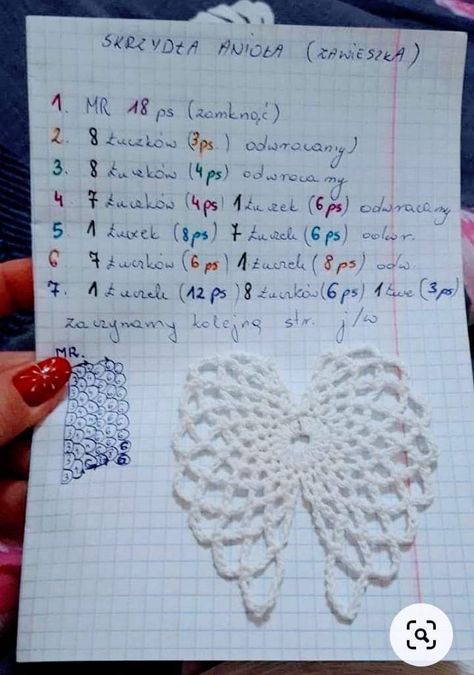 SKRZYDŁA ANIOŁA (ZAWIESZKA)
1. MR 18 ps (zamknąć)
2. 8 łuczków (3ps.) odwracamy)
3. 8 łuczków (4ps) odwracamy
4 7 łuczków (4ps) 1 łuczek (6ps) odwracamy
5 1 łuczek (8ps) 7 łuczk (6ps) odwr.
6 7 łuczków (6ps) 1 łuczek (8ps) odw.
7. 1 łuczek (12ps) 8 łuczków (6ps) 1 łucz (3ps)
zaczynamy kolejną str. j/w
MR.